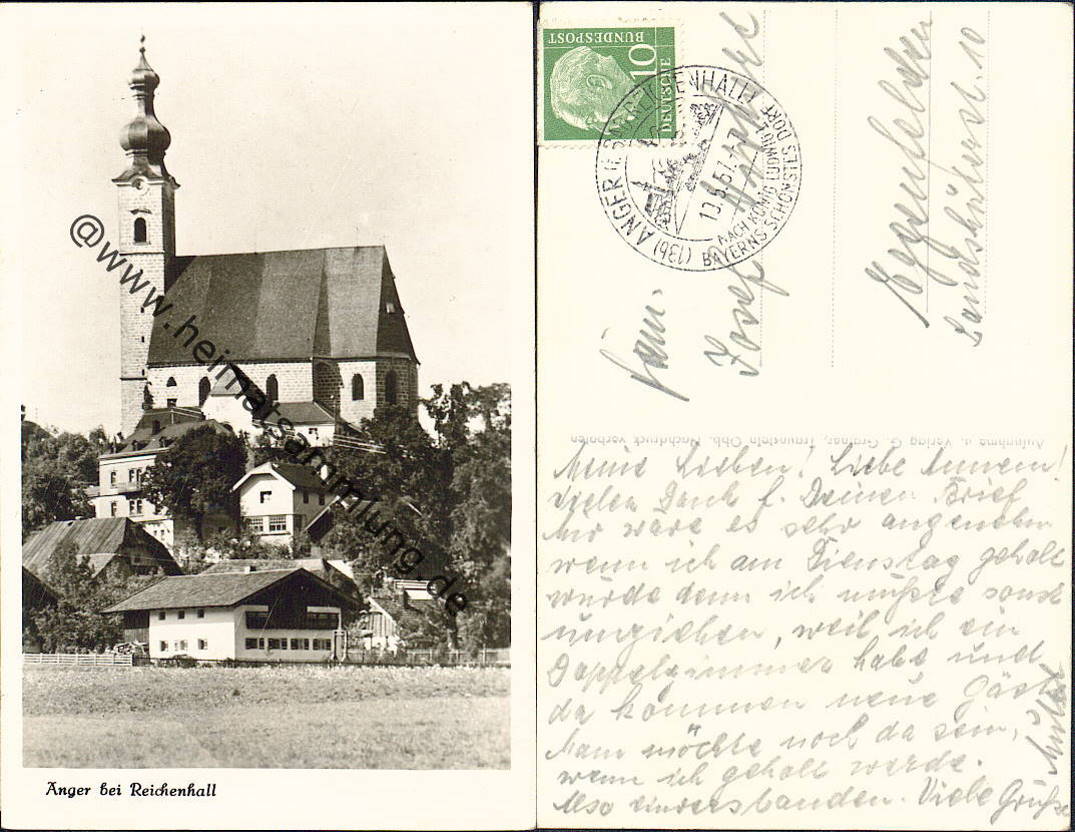 @www.heimatsammlung.de
Anger bei Reichenhall
DEUTSCHE BUNDESPOST
10
(13b) ANGER
REICHENHALL
10.5.57
NACH KÖNIG LUDWIG I.
BAYERNS SCHÖNSTES DORF
Fam.
Josef
Eggenfelden
Landshuterst. 10
Aufnahme u. Verlag G. Grainer, Traunstein Obb. Nachdruck verboten
Meine Lieben! Liebe
Vielen Dank f. Deinen Brief
Mir wäre es sehr angenehm
wenn ich am Dienstag geholt
würde denn ich müsste sonst
umziehen, weil ich ein
Doppelzimmer habe und
da kommen neue Gäste
Mam möchte noch da sein,
wenn ich geholt werde.
Also einverstanden. Viele Grüße
Mutter